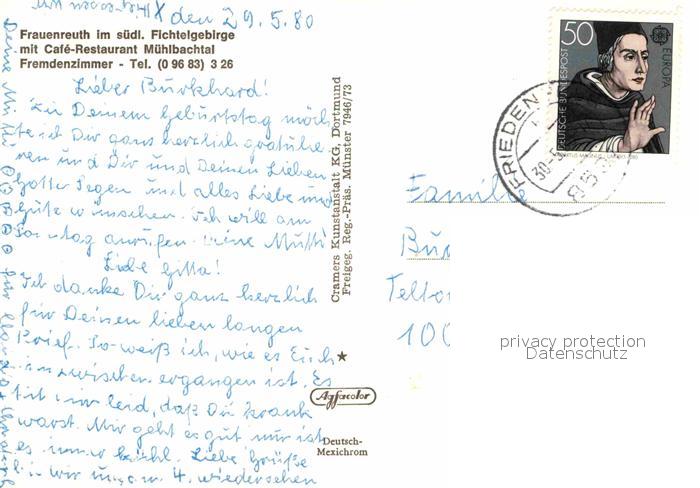 den 29.5.80
Frauenreuth im südl. Fichtelgebirge
mit Café-Restaurant Mühlbachtal
Fremdenzimmer - Tel. (0 96 83) 3 26
Lieber Burkhard!
Zu Deinem Geburtstag möch
te ich Dir ganz herzlich gratulie
ren und Dir und Deinen Lieben
Gottes Segen und alles Liebe und
Gute wünschen. Ich will am
Sonntag anrufen. Deine Mutti
Liebe Gitta!
Ich danke Dir ganz herzlich
für Deinen lieben langen
Brief. So weiß ich, wie es Euch
inzwischen ergangen ist. Es
tut mir leid, daß Du krank
warst. Mir geht es gut nur ist
es immer kühl. Liebe Grüße
bis wir uns am 4. wiedersehen
Deine Mutti
für
Cramers Kunstanstalt KG, Dortmund
Freigeg. Reg.-Präs. Münster 7946/73
Agfacolor
Deutsch-
Mexichrom
50
DEUTSCHE BUNDESPOST
EUROPA
FRIEDEN
30.5.
Familie
Bur
Telto
100
privacy protection
Datenschutz